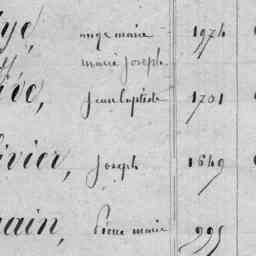 ange marie 1974
marie joseph
Jean baptiste 1701
ivier, joseph 1649
ain, Pierre marie 995